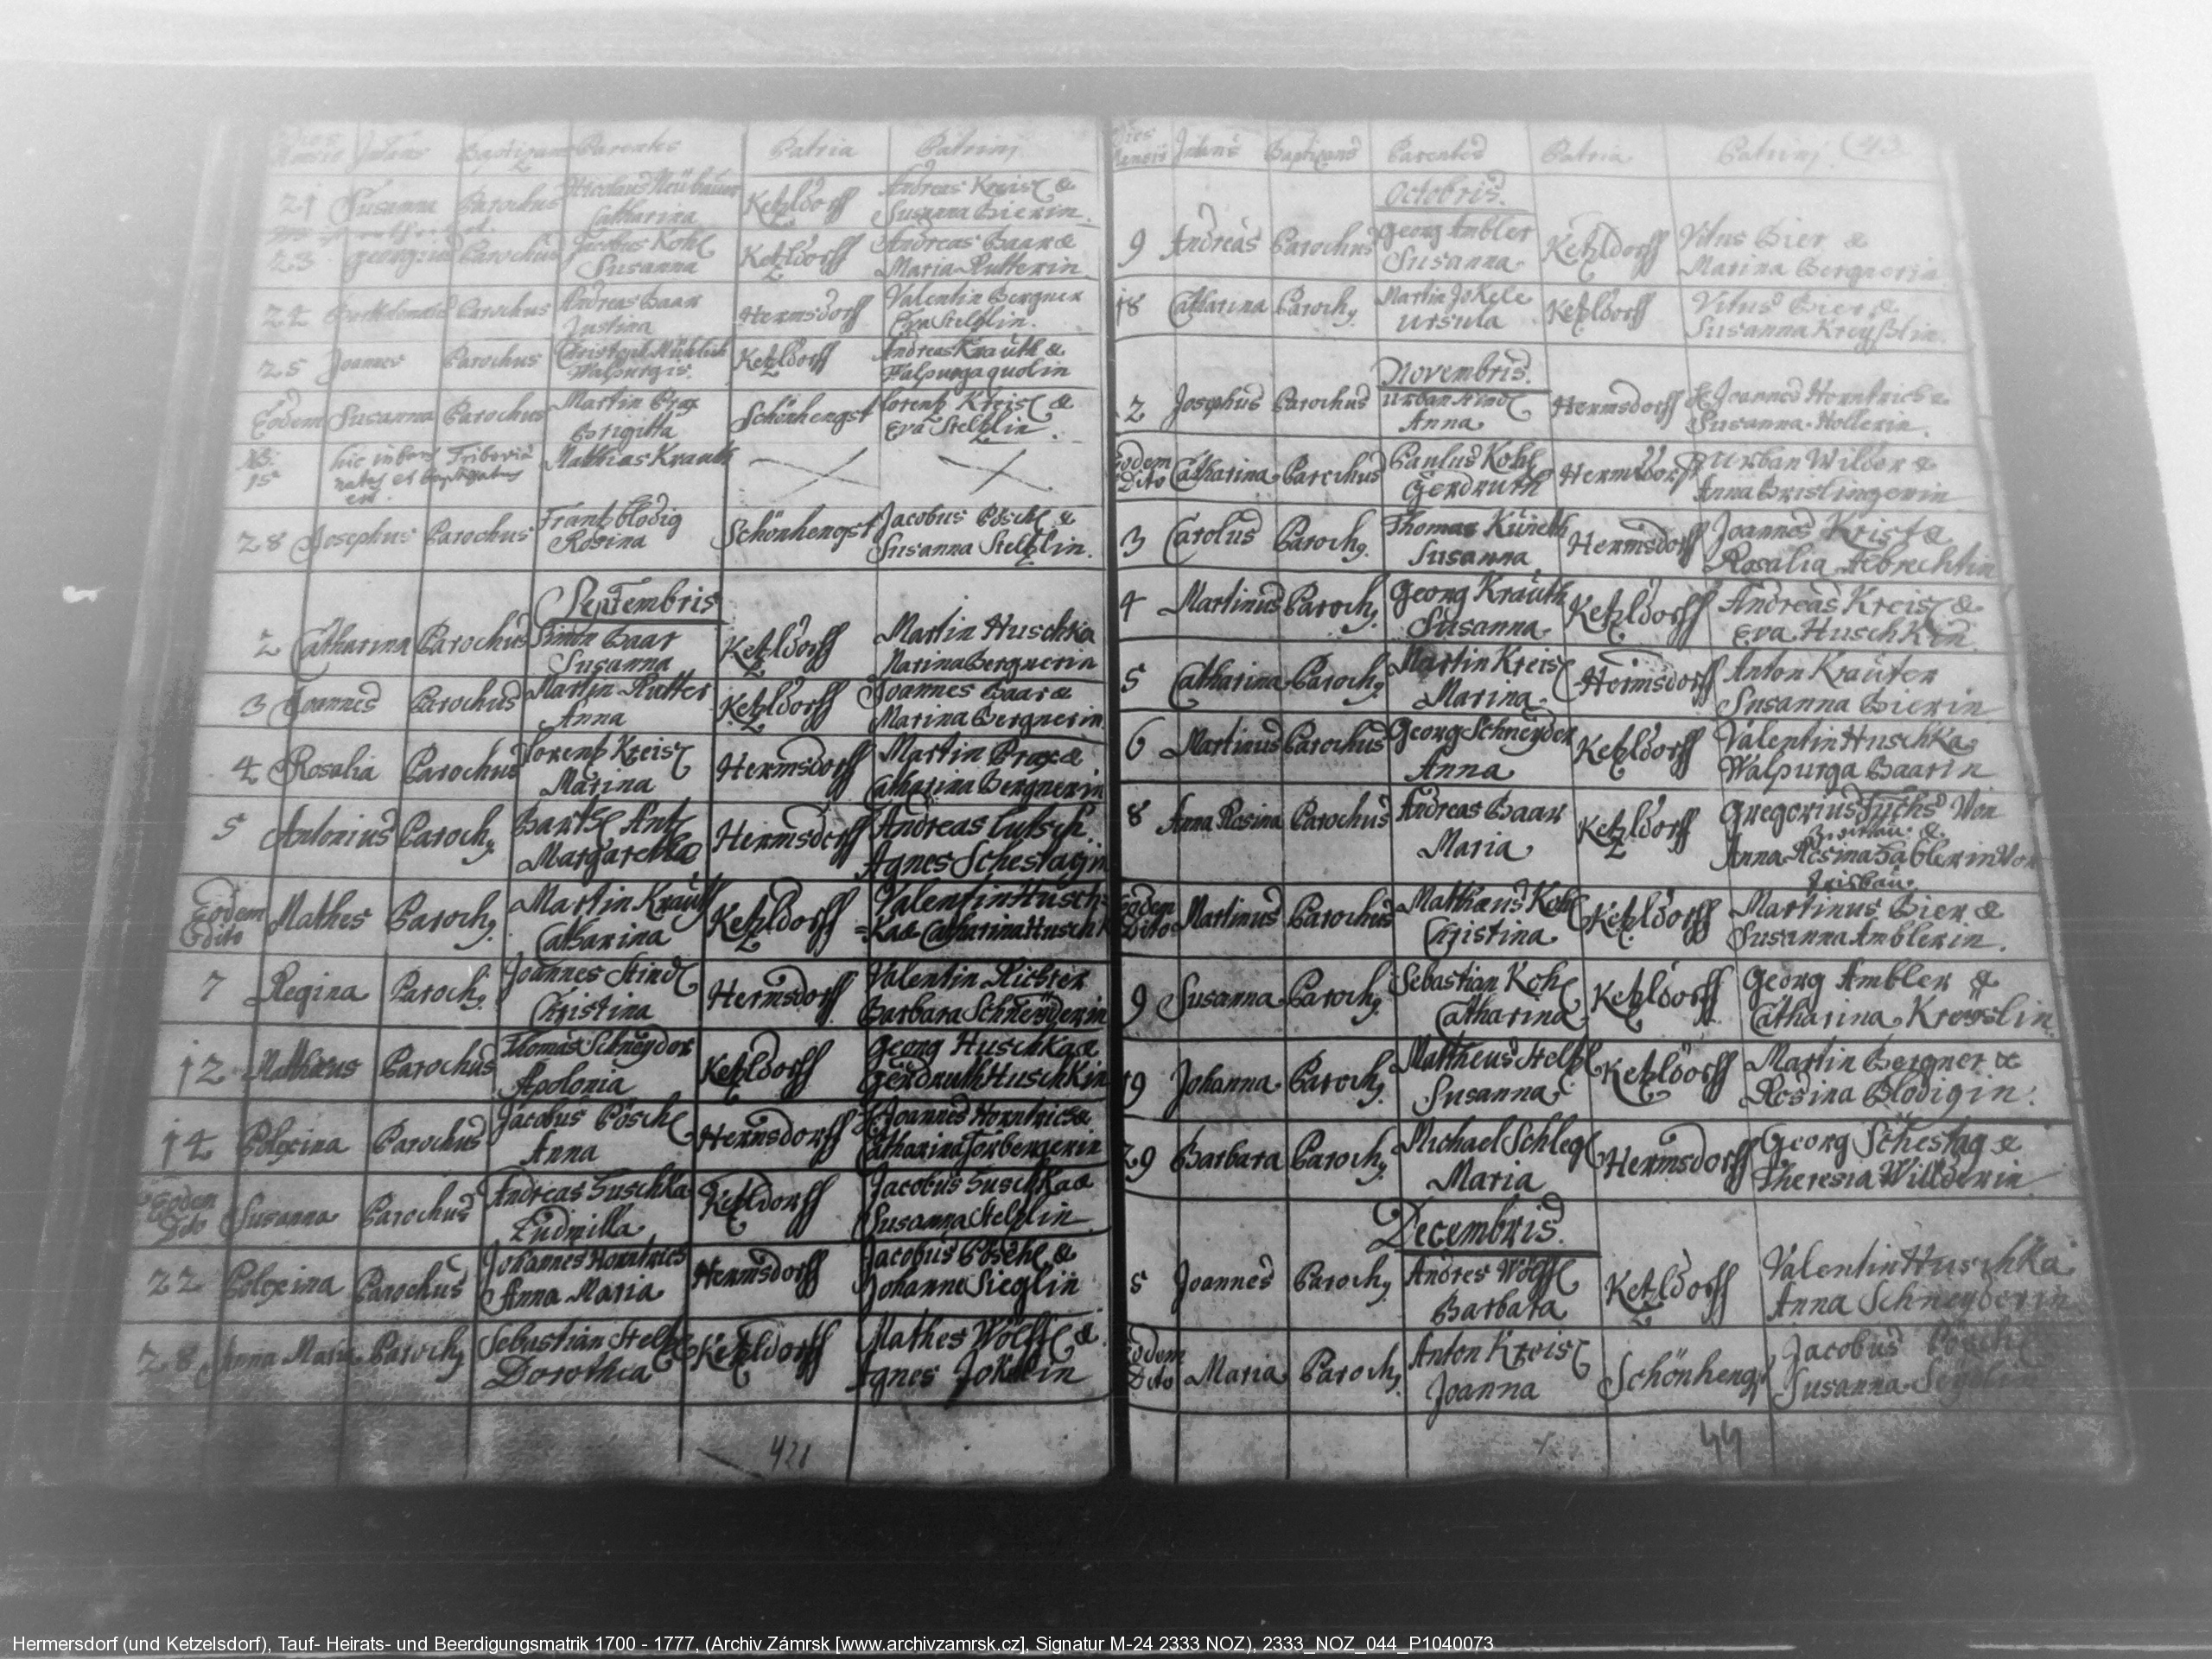 Dies Mensis Infans Baptizans Parentes Patria Patrini
21 Susanna Parochus Nicolaus Neübauer Ketzldorff Andreas Kreisl &
Catharina Susanna Bierin.
23 georgius Parochus Jacobus Kohl Ketzldorff Andreas Baar &
Susanna Maria Rutterin
24 Parochus Andreas Baar Hermsdorff Valentin Bergner
Justina Eva Stelzlin.
25 Joannes Parochus Christoph Ketzldorff Andreas Krauth &
Walpurgis. Walpurga quolin
Eodem Susanna Parochus Martin Prax Schönhengst Lorentz Kreisl &
Brigitta Eva Stelzlin.
NB. hic in Triboviá Mathias Krauth
15 natus et baptizatus
est.
28 Josephus Parochus Frantz blodig Schönhengst Jacobus Pöschl &
Rosina Susanna Stelzlin.
Septembris
2 Catharina Parochus Simon Baar Ketzldorff Martin Huschka
Susanna Marina Bergnerin
3 Joannes Parochus Martin Rutter Ketzldorff Joannes Baar &
Anna Marina Bergnerin
4 Rosalia Parochus Lorentz Kreisl Hermsdorff Martin Prax &
Marina Catharina Bergnerin
5 Antonius Paroch9 Bartl Antl Hermsdorff Andreas Lutsch
Margaretha Agnes Schestagin
Eodem Mathes Paroch9 Martin Krauth Ketzldorff Valentin Husch=
Dito Catharina =Ka & Catharina Husch
7 Regina Paroch9 Joannes Kindl Hermsdorff Valentin Richter
Christina Barbara Schneÿderin
12 Mathaeus Parochus Thomas Schneyder Ketzldorff Georg Huschka &
Apolonia Gerdruth Huschkin
14 Polexina Parochus Jacobus Pöschl Hermsdorff Joannes Horntrich &
Anna Catharina Forbergerin
Eodem Susanna Parochus Andreas Huschka Ketzldorff Jacobus Huschka &
Dito Ludmilla Susanna Stelzlin
22 Polexina Parochus Johannes Horntrich Hermsdorff Jacobus Pöschl &
Anna Maria Johanna Sieglin
28 Anna Maria Paroch9 Sebastian Stelzl Ketzldorff Mathes Wölffl &
Dorothea Agnes Joklin
421
Dies Mensis Infans Baptizans Parentes Patria Patrini 43
Octobris.
9 Andreas Parochus Georg Ambler Ketzldorff Vitus Bier &
Susanna Marina Bergnerin
18 Catharina Paroch9 Martin Jokele Ketzldorff Vitus Bier &
Ursula Susanna Kreyßlin.
Novembris.
2 Josephus Parochus Urban Kindl Hermsdorff Joannes Horntrich &
Anna Susanna Hollerin.
Eodem Catharina Parochus Paulus Kohl Hermsdorff Urban Wilder &
Dito Gerdruth Anna Bristingerin
3 Carolus Paroch9 Thomas Küneth Hermsdorff Joannes Krist &
Susanna Rosalia Albrechtin
4 Martinus Paroch9 Georg Krauth Ketzldorff Andreas Kreisl &
Susanna Eva Huschkin
5 Catharina Paroch9 Martin Kreisl Hermsdorff Anton Krauter
Marina Susanna Bierin
6 Martinus Parochus Georg Schneÿder Ketzldorff Valentin Huschka
Anna Walpurga Baarin
8 Anna Rosina Parochus Andreas Baar Ketzldorff Gregorius Fuchs Von
Maria Zwittau &
Anna Rosina Von
Tribau.
Eodem Martinus Parochus Mathaeus Kohl Ketzldorff Martinus Bier &
Dito Christina Susanna Amblerin.
9 Susanna Paroch9 Sebastian Kohl Ketzldorff Georg Ambler &
Catharina Catharina Kreyslin.
19 Johanna Paroch9 Mattheus Stelzl Ketzldorff Martin Bergner &
Susanna Rosina Blodigin.
29 Barbara Paroch9 Michael Schlegl Hermsdorff Georg Schestag &
Maria Theresia Willderin
Decembris.
5 Joannes Paroch9 Andres Wölffl Ketzldorff Valentin Huschka
Barbara Anna Schneyderin
Eodem Maria Paroch9 Anton Kreisl Schönhengst Jacobus Pöschl
Dito Joanna Susanna
44
Hermersdorf (und Ketzelsdorf), Tauf- Heirats- und Beerdigungsmatrik 1700 - 1777, (Archiv Zámrsk [www.archivzamrsk.cz], Signatur M-24 2333 NOZ), 2333_NOZ_044_P1040073